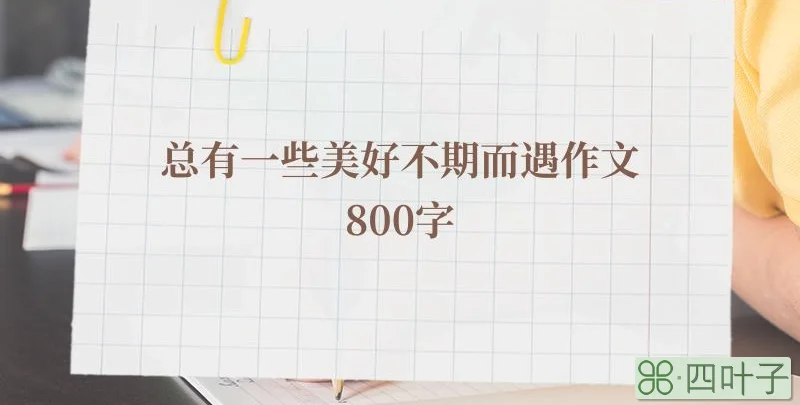 总有一些美好不期而遇作文
800字
四叶子